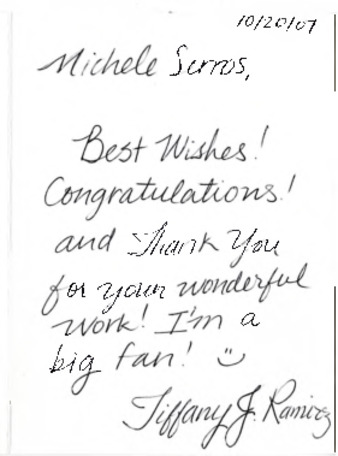 10/20/07
Michele Serros,
Best Wishes!
Congratulations!
and Thank You
for your wonderful
work! I'm a
big fan! :)
Tiffany J. Ramirez